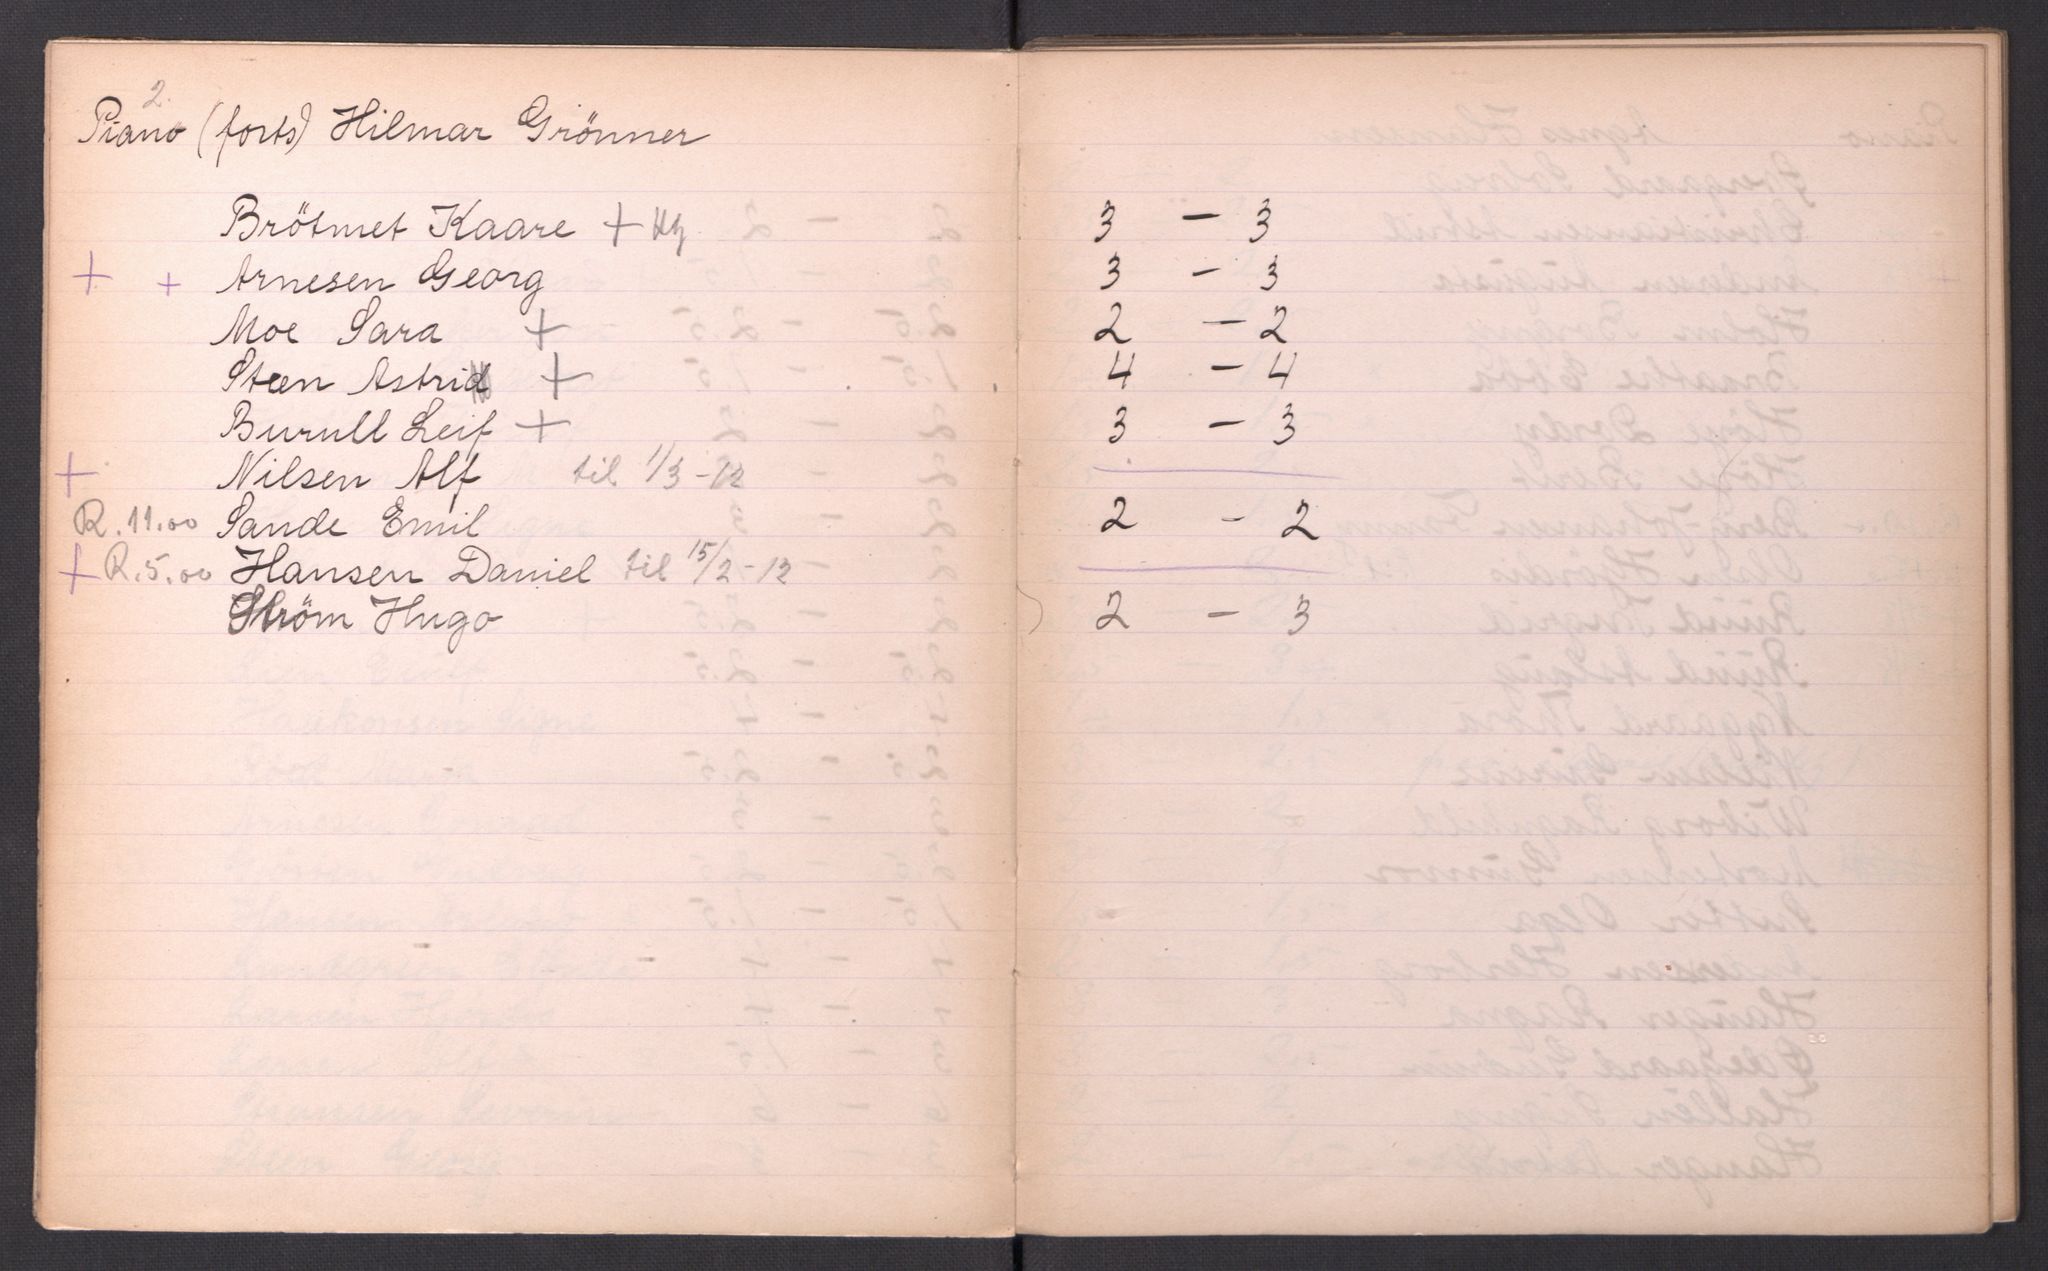 2.
Piano (forts) Hilmar Grönner
Brötmet Kaare + 3 – 3
+ + Arnesen Georg 3 – 3
Moe Sara + 2 – 2
Steen Astrid + 4 – 4
Burull Leif + 3 – 3
+ Nilsen Alf til 1/3 – 12
R. 11.00 Sande Emil 2 – 2
+ R. 5.00 Hansen Daniel til 15/2 – 12
Ström Hugo 2 – 3